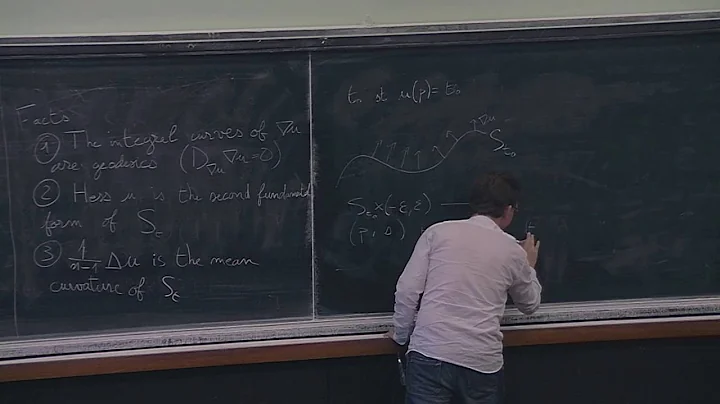 Facts
① The integral curves of ∇u
are geodesics (D_∇u ∇u = 0)
② Hess u is the second fundamental
form of S_t
③ 1/(n-1) Δu is the mean
curvature of S_t
t₀ st u(p) = t₀
∇u
S_t₀
S_t₀ × (-ε, ε)
(p, s)